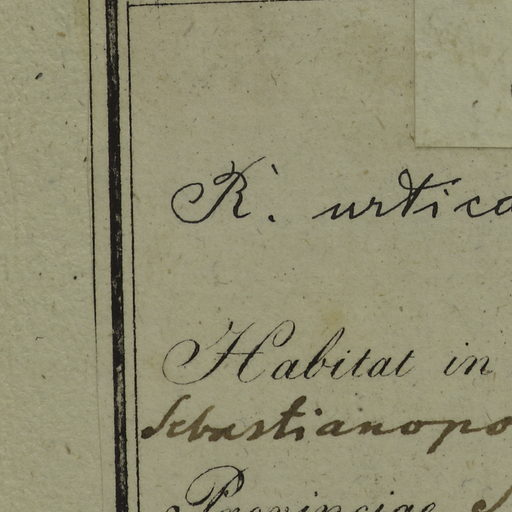 R. urtica
Habitat in
Sebastianopo
Provinciae S